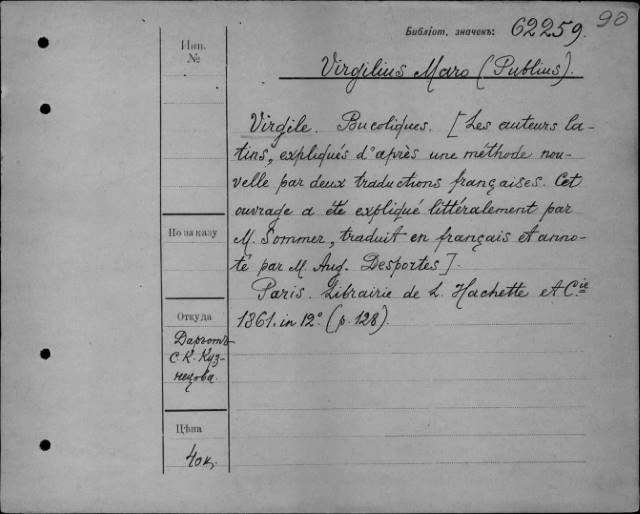 90
Библіот. значекъ: 62259.
Инв.
№
Virgilius Maro (Publius).
Virgile. Bucoliques. [Les auteurs la-
tins, expliqués d'après une méthode nou-
velle par deux traductions françaises. Cet
ouvrage a été expliqué littéralement par
M. Sommer, traduit en français et anno-
té par M. Aug. Desportes].
Paris. Librairie de L. Hachette et C.ie
1861. in 12°. (p. 128).
По заказу
Откуда
Даръ отъ
С. К. Куз-
нецова.
Цѣна
40к.